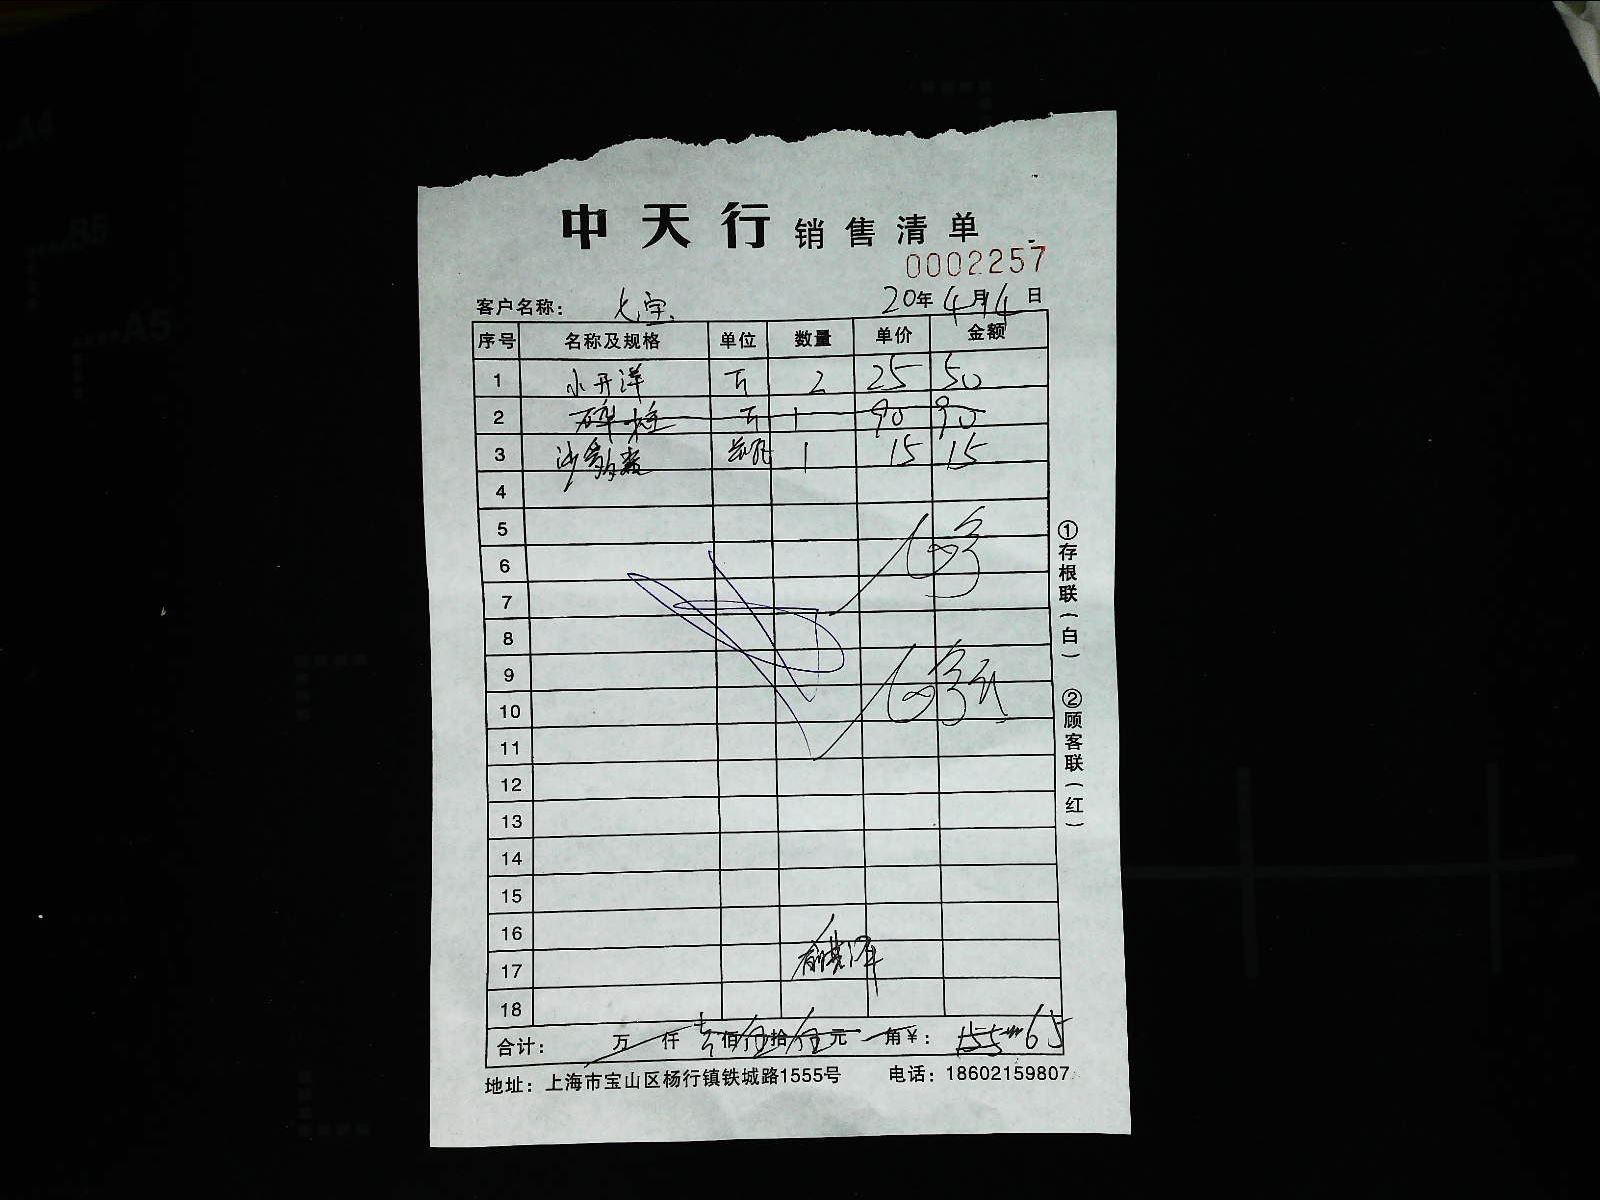 中天行 销售清单
0002257
客户名称： 七宝 20年4月4日
序号 名称及规格 单位 数量 单价 金额
1 小开洋 斤 2 25 50
2 斤 1 90 90
3 1 15 15
4
5
6
7
8
9
10
11
12
13
14
15
16
17
18
合计： 万 仟 壹佰伍拾伍元 角 ¥： 155 65
地址：上海市宝山区杨行镇铁城路1555号 电话：18602159807
①存根联（白） ②顾客联（红）